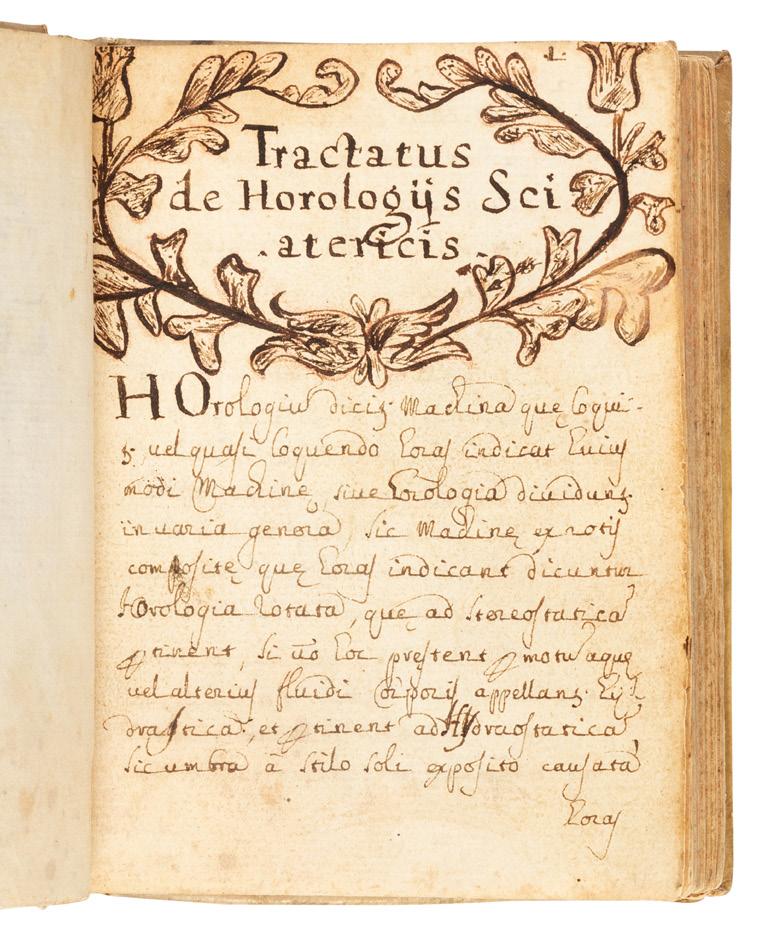 Tractatus
de Horologijs Sci
.atericis.
HOrologiũ dicitʒ Machina quę loqui-
tʒ vel quasi loquendo horas indicat huius
modi Machinę, siue horologia diuiduntʒ
in uaria genera, sic Machinę ex rotis
compositę quę horas indicant dicuntur
Horologia rotata, quę ad stereostatica
ꝑtinent, si ũo hoc pręstent ꝑ motũ aquę
vel alterius fluidi corporis appellantʒ Hy
drastica, et ꝑtinent ad Hydraostatica,
sic umbra à stilo soli exposito causata
horas